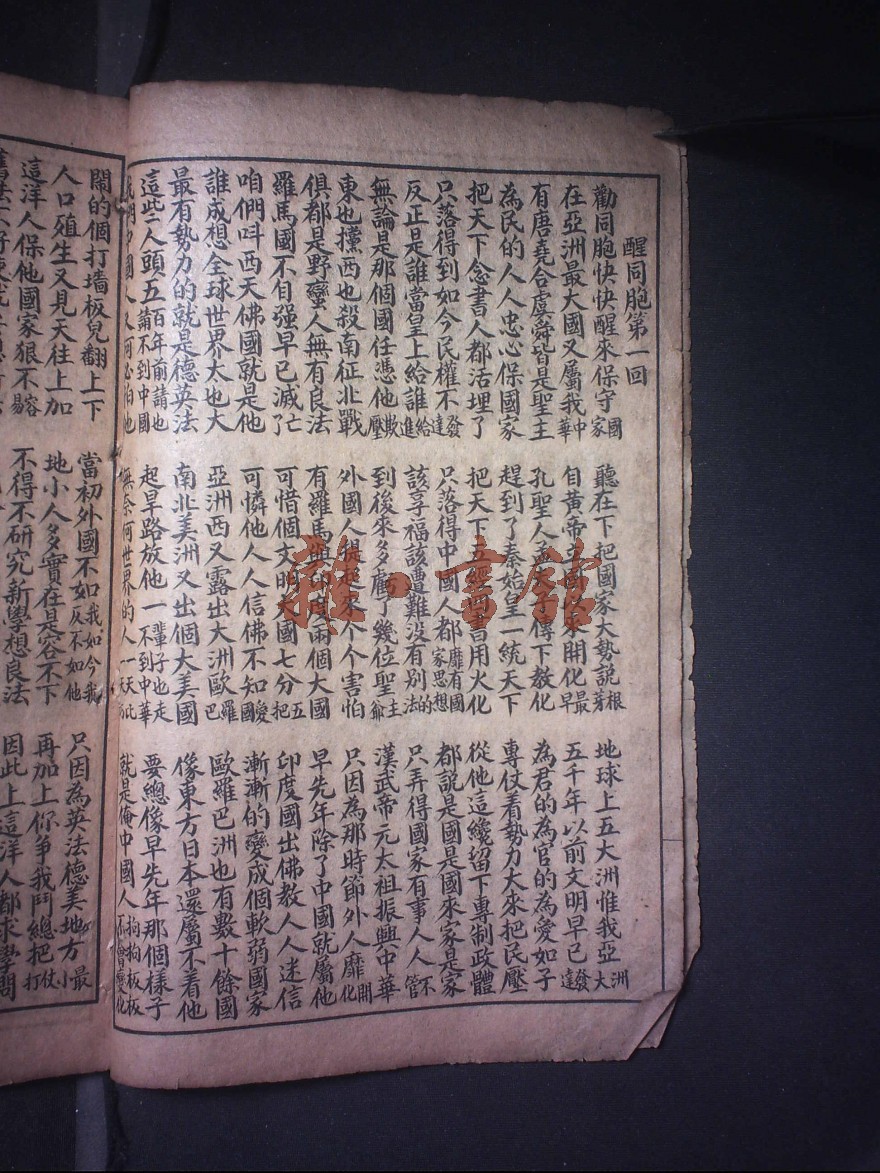 醒同胞第一回
勸同胞快快醒來保守國家 聽在下把國家大勢說根芽 地球上五大洲惟我亞洲大
在亞洲最大國又屬我中華 自黃帝立國以來開化最早 五千年以前文明早已發達
有唐堯合虞舜皆是聖主 孔聖人孟夫子傳下教化 為君的為官的為愛如子
為民的人人忠心保國家 趕到了秦始皇一統天下 專仗着勢力大來把民壓
把天下念書人都活埋了 把天下五經四書用火化 從他這纔留下專制政體
只落得到如今民權不發達 只落得中國人都靡有國家思想 都說是國是國來家是家
反正是誰當皇上給誰給進 該享福該遭難沒有別的法 只弄得國家有事人人不管
無論是那個國任憑他欺壓 到後來多虧了幾位聖主爺 漢武帝元太祖振興中華
東也攩西也殺南征北戰 外國人提起來个个害怕 只因為那時節外人靡開化
俱都是野蠻人無有良法 有羅馬與印度兩個大國 早先年除了中國就屬他
羅馬國不自强早已滅了亡 可惜個文明大國七分五把 印度國出佛教人人迷信
咱們呌西天佛國就是他 可憐他人人信佛不知愛國 漸漸的變成個軟弱國家
誰成想全球世界太也大 亞洲西又露出大洲歐羅巴 歐羅巴洲也有數十餘國
最有勢力的就是德英法 南北美洲又出個大美國 像東方日本還屬不着他
這些人頭五百年前請也請不到中國 起旱路放他一輩子也走不到中華 要總像早先年那個樣子
我們中國人又何必怕他 無奈何世界的人一天比 就是俺中國人拘拘板板不會變化
鬧的個打墙板兒翻上下 當初外國不如我如今我反不如他 只因為英法德美地方最小
人口殖生又見天往上加 地小人多實在是容不下 再加上你爭我鬥總把仗打
這洋人保他國家狠不容易 不得不研究新學想良法 因此上這洋人都求學問
雜·書館